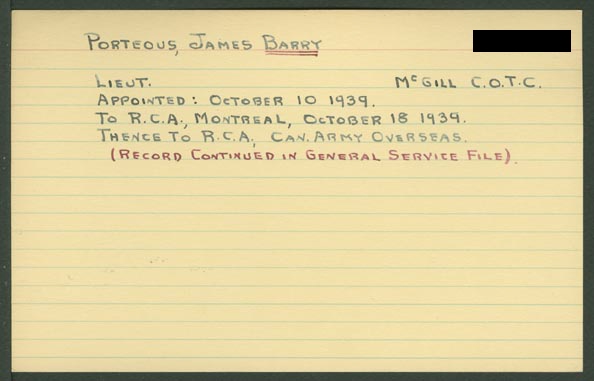 PORTEOUS, JAMES BARRY
LIEUT. McGILL C.O.T.C.
APPOINTED: OCTOBER 10 1939.
TO R.C.A., MONTREAL, OCTOBER 18 1939.
THENCE TO R.C.A., CAN. ARMY OVERSEAS.
(RECORD CONTINUED IN GENERAL SERVICE FILE).